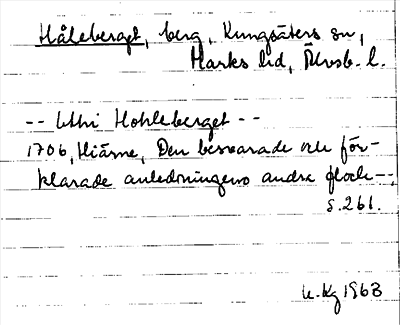 Håleberget, berg, Kungsäters sn,
Marks hd, Älvsb. l.
-- Uthi Hohleberget --
1706, Hiärne, Den beswarade och för-
klarade anledningens andra flock--,
s. 261.
1963